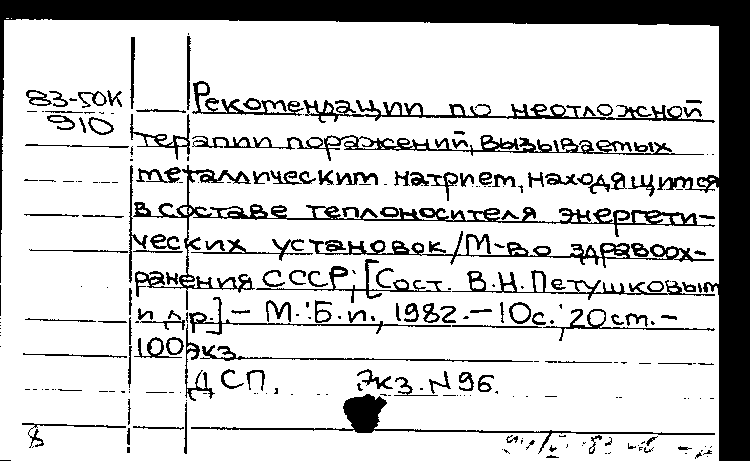 83-50К
910
Рекомендации по неотложной
терапии поражений, вызываемых
металлическим натрием, находящимся
в составе теплоносителя энергети-
ческих установок / М-во здравоох-
ранения СССР; [Сост. В.Н. Петушковым
и др.]. - М.: Б.и., 1982. - 10с.; 20см. -
100экз.
ДСП. Экз. N 96.
8